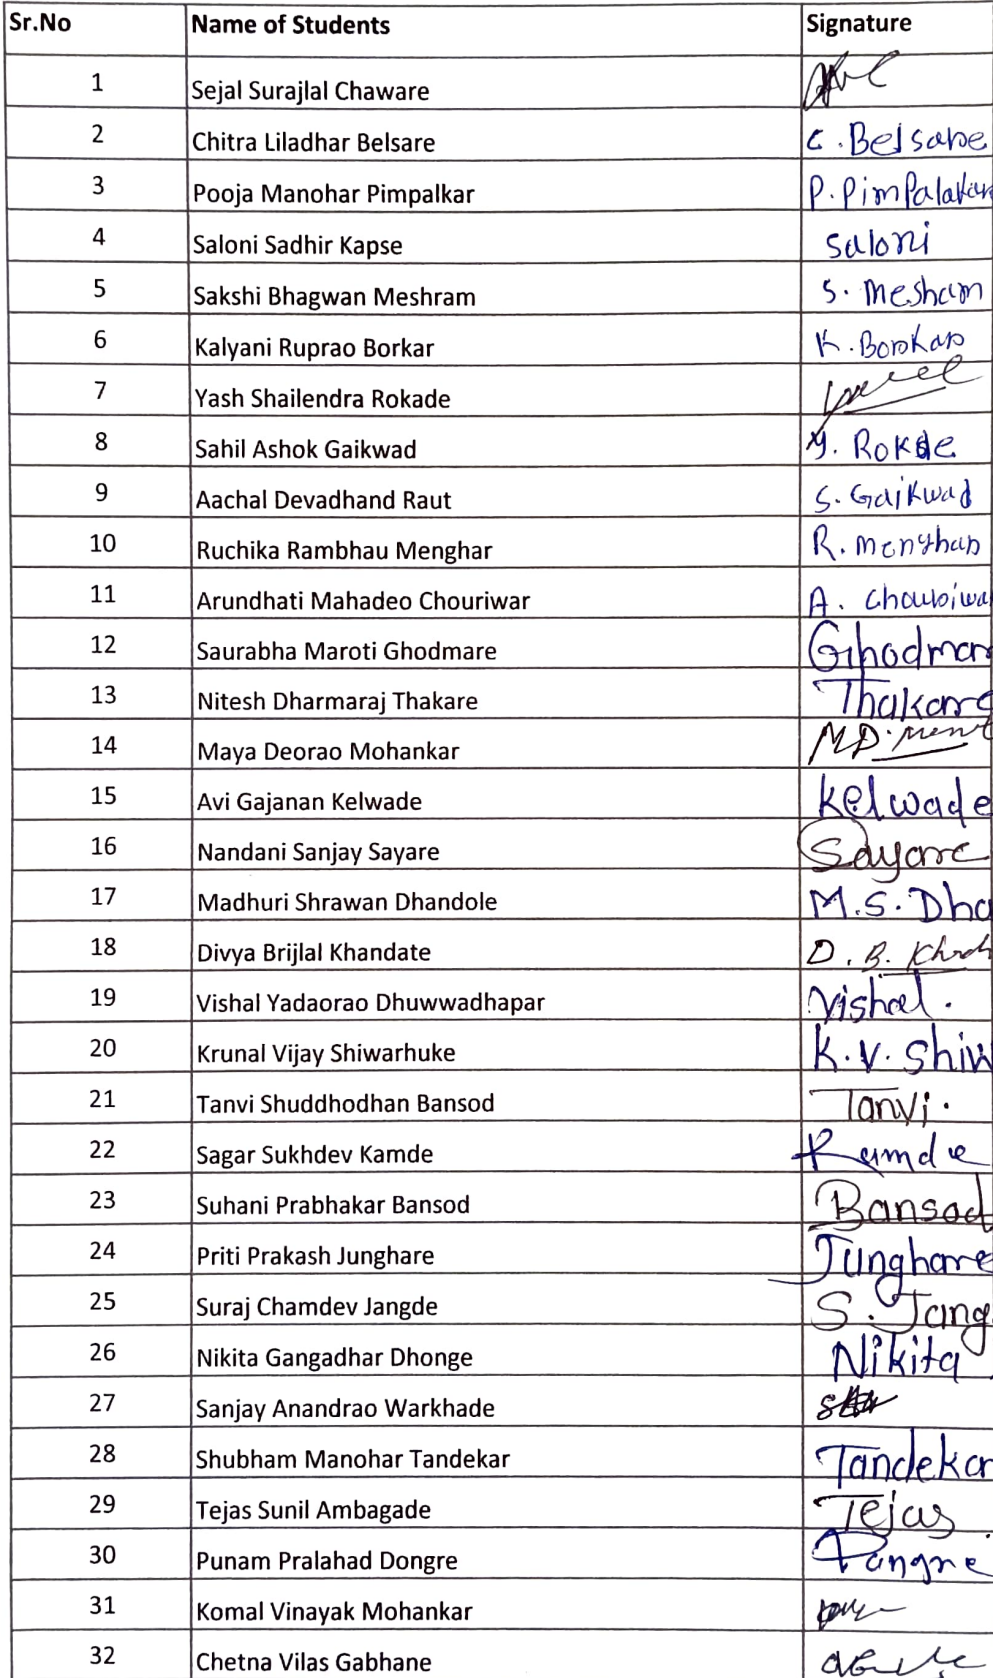 Sr.No Name of Students Signature
1 Sejal Surajlal Chaware
2 Chitra Liladhar Belsare C. Belsare
3 Pooja Manohar Pimpalkar P. Pimpalakar
4 Saloni Sadhir Kapse Saloni
5 Sakshi Bhagwan Meshram S. Mesham
6 Kalyani Ruprao Borkar K. Borokar
7 Yash Shailendra Rokade
8 Sahil Ashok Gaikwad Y. Rokde
9 Aachal Devadhand Raut S. Gaikwad
10 Ruchika Rambhau Menghar R. Menghar
11 Arundhati Mahadeo Chouriwar A.
12 Saurabha Maroti Ghodmare Ghodmar
13 Nitesh Dharmaraj Thakare Thakare
14 Maya Deorao Mohankar M.D.
15 Avi Gajanan Kelwade Kelwade
16 Nandani Sanjay Sayare Sayare
17 Madhuri Shrawan Dhandole M.S. Dha
18 Divya Brijlal Khandate D. B.
19 Vishal Yadaorao Dhuwwadhapar Vishal.
20 Krunal Vijay Shiwarhuke K.V. Shiw
21 Tanvi Shuddhodhan Bansod Tanvi.
22 Sagar Sukhdev Kamde Kamde
23 Suhani Prabhakar Bansod Bansod
24 Priti Prakash Junghare Junghare
25 Suraj Chamdev Jangde S. Jang
26 Nikita Gangadhar Dhonge Nikita
27 Sanjay Anandrao Warkhade
28 Shubham Manohar Tandekar Tandekar
29 Tejas Sunil Ambagade Tejas
30 Punam Pralahad Dongre
31 Komal Vinayak Mohankar
32 Chetna Vilas Gabhane